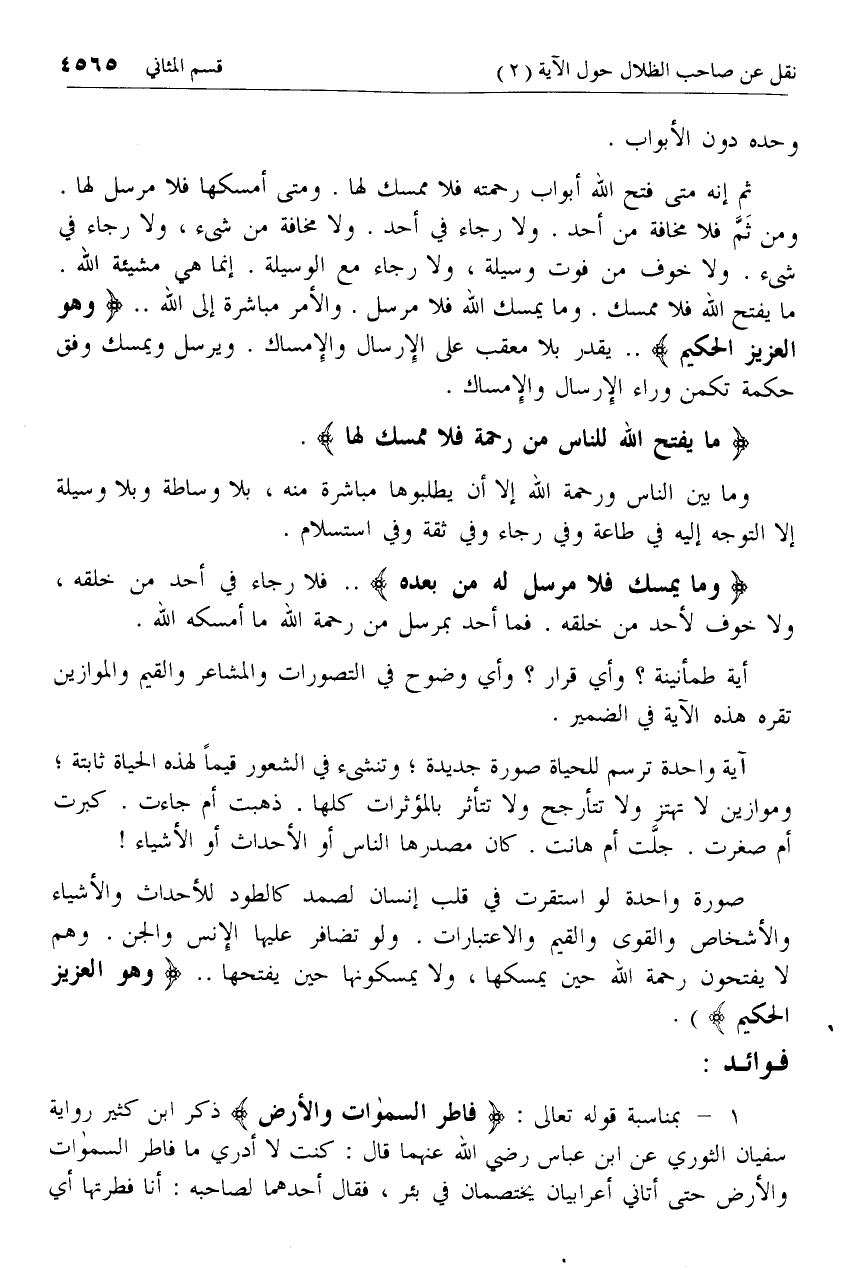 نقل عن صاحب الظلال حول الآية ( ٢ ) قسم المثاني ٤٥٦٥
وحده دون الأبواب .
ثم إنه متى فتح الله أبواب رحمته فلا ممسك لها . ومتى أمسكها فلا مرسل لها .
ومن ثَمَّ فلا مخافة من أحد . ولا رجاء في أحد . ولا مخافة من شيء ، ولا رجاء في
شيء . ولا خوف من فوت وسيلة ، ولا رجاء مع الوسيلة . إنما هي مشيئة الله .
ما يفتح الله فلا ممسك . وما يمسك الله فلا مرسل . والأمر مباشرة إلى الله .. ﴿ وهو
العزيز الحكيم ﴾ .. يقدر بلا معقب على الإرسال والإمساك . ويرسل ويمسك وفق
حكمة تكمن وراء الإرسال والإمساك .
﴿ ما يفتح الله للناس من رحمة فلا ممسك لها ﴾ .
وما بين الناس ورحمة الله إلا أن يطلبوها مباشرة منه ، بلا وساطة وبلا وسيلة
إلا التوجه إليه في طاعة وفي رجاء وفي ثقة وفي استسلام .
﴿ وما يمسك فلا مرسل له من بعده ﴾ .. فلا رجاء في أحد من خلقه ،
ولا خوف لأحد من خلقه . فما أحد بمرسل من رحمة الله ما أمسكه الله .
أية طمأنينة ؟ وأي قرار ؟ وأي وضوح في التصورات والمشاعر والقيم والموازين
تقره هذه الآية في الضمير .
آية واحدة ترسم للحياة صورة جديدة ؛ وتنشىء في الشعور قيماً لهذه الحياة ثابتة ؛
وموازين لا تهتز ولا تتأرجح ولا تتأثر بالمؤثرات كلها . ذهبت أم جاءت . كبرت
أم صغرت . جلَّت أم هانت . كان مصدرها الناس أو الأحداث أو الأشياء !
صورة واحدة لو استقرت في قلب إنسان لصمد كالطود للأحداث والأشياء
والأشخاص والقوى والقيم والاعتبارات . ولو تضافر عليها الإنس والجن . وهم
لا يفتحون رحمة الله حين يمسكها ، ولا يمسكونها حين يفتحها .. ﴿ وهو العزيز
الحكيم ﴾ ) .
فـوائـد :
١ – بمناسبة قوله تعالى : ﴿ فاطر السمٰوات والأرض ﴾ ذكر ابن كثير رواية
سفيان الثوري عن ابن عباس رضي الله عنهما قال : كنت لا أدري ما فاطر السمٰوات
والأرض حتى أتاني أعرابيان يختصمان في بئر ، فقال أحدهما لصاحبه : أنا فطرتها أي